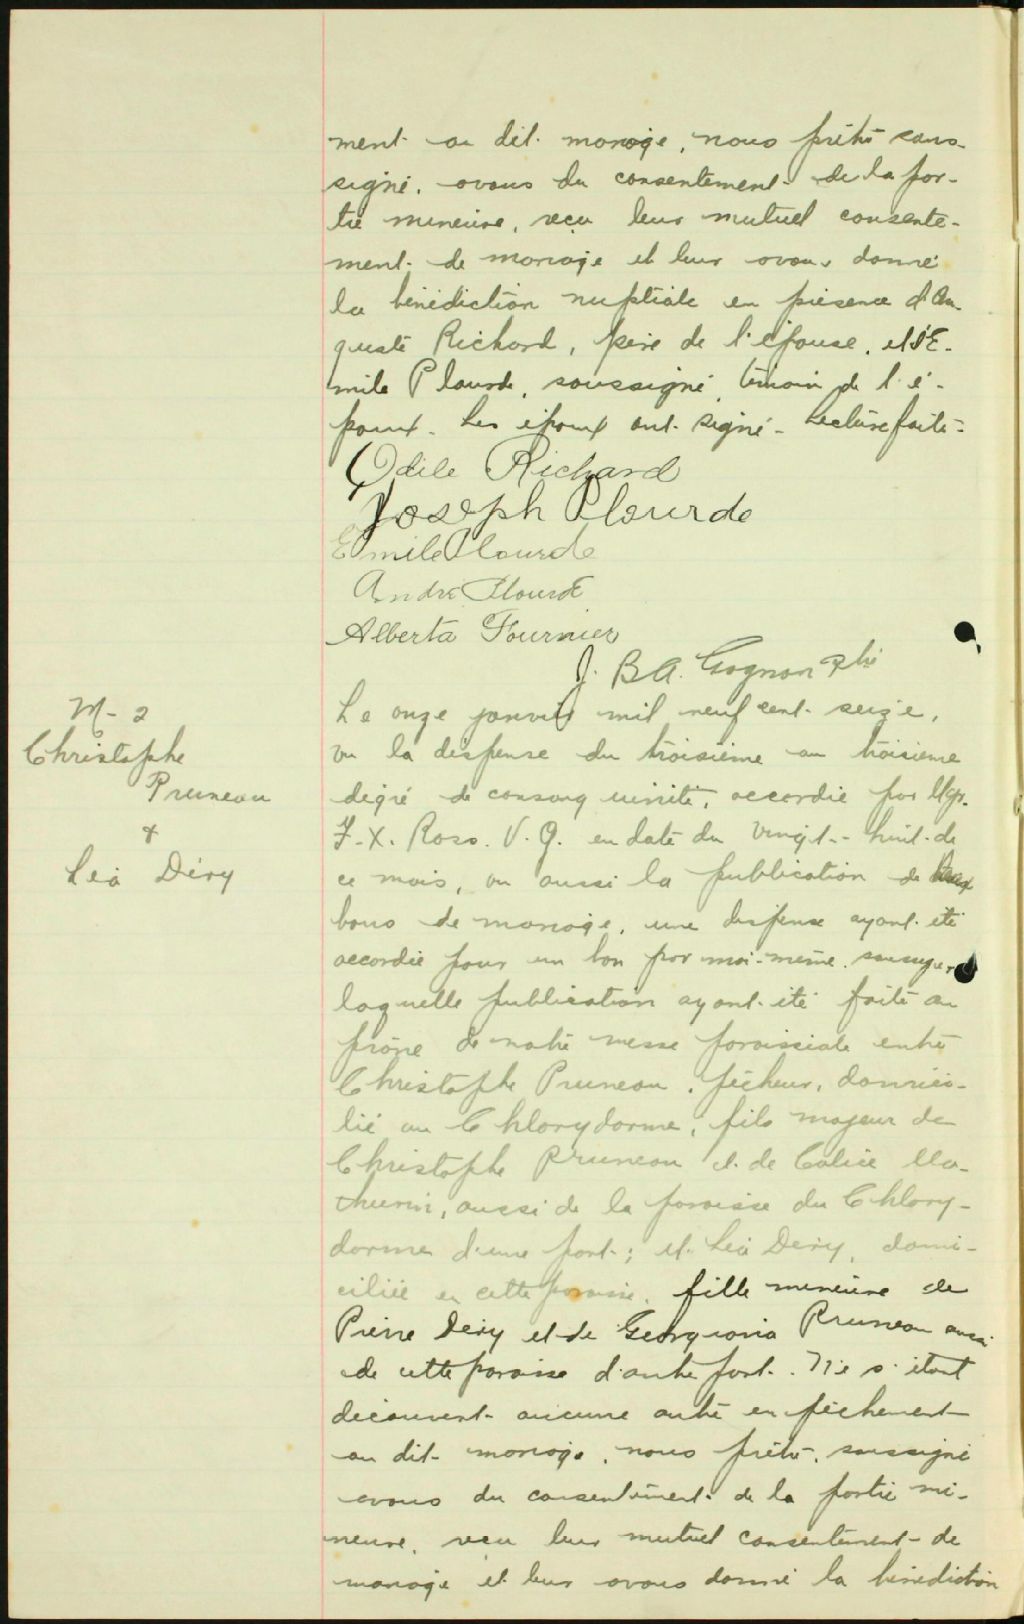 ment au dit mariage, nous prêtre sous-
signé, avons du consentement de la par-
tie mineure, reçu leur mutuel consente-
ment de mariage et leur avons donné
la bénédiction nuptiale en présence d'Au-
guste Richard, père de l'épouse, et d'E-
mile Plourde, soussigné, témoin de l'é-
poux. Les époux ont signé. Lecture faite.
Odile Richard
Joseph Plourde
Emile Plourde
André Plourde
Alberta Fournier
J. B A. Gagnon Ptre
M-2
Christophe
Pruneau
&
Léa Déry
Le onze janvier mil neuf cent seize,
vu la dispense du troisième au troisième
degré de consanguinité, accordée par Mgr.
F. X. Ross. V. G. en date du vingt-huit de
ce mois, vu aussi la publication de deux
bans de mariage, une dispense ayant été
accordée pour un ban par moi-même soussigné,
laquelle publication ayant été faite au
prône de notre messe paroissiale entre
Christophe Pruneau, pêcheur, domici-
lié au Chlorydorme, fils majeur de
Christophe Pruneau et de Calice Ma-
thurin, aussi de la paroisse du Chlory-
dorme d'une part; et Léa Déry, domi-
ciliée en cette paroisse, fille mineure de
Pierre Déry et de Georgiana Pruneau aussi
de cette paroisse d'autre part. Ne s'étant
découvert aucune autre empêchement
au dit mariage, nous prêtre, soussigné
avons du consentement de la partie mi-
neure, reçu leur mutuel consentement de
mariage et leur avons donné la bénédiction